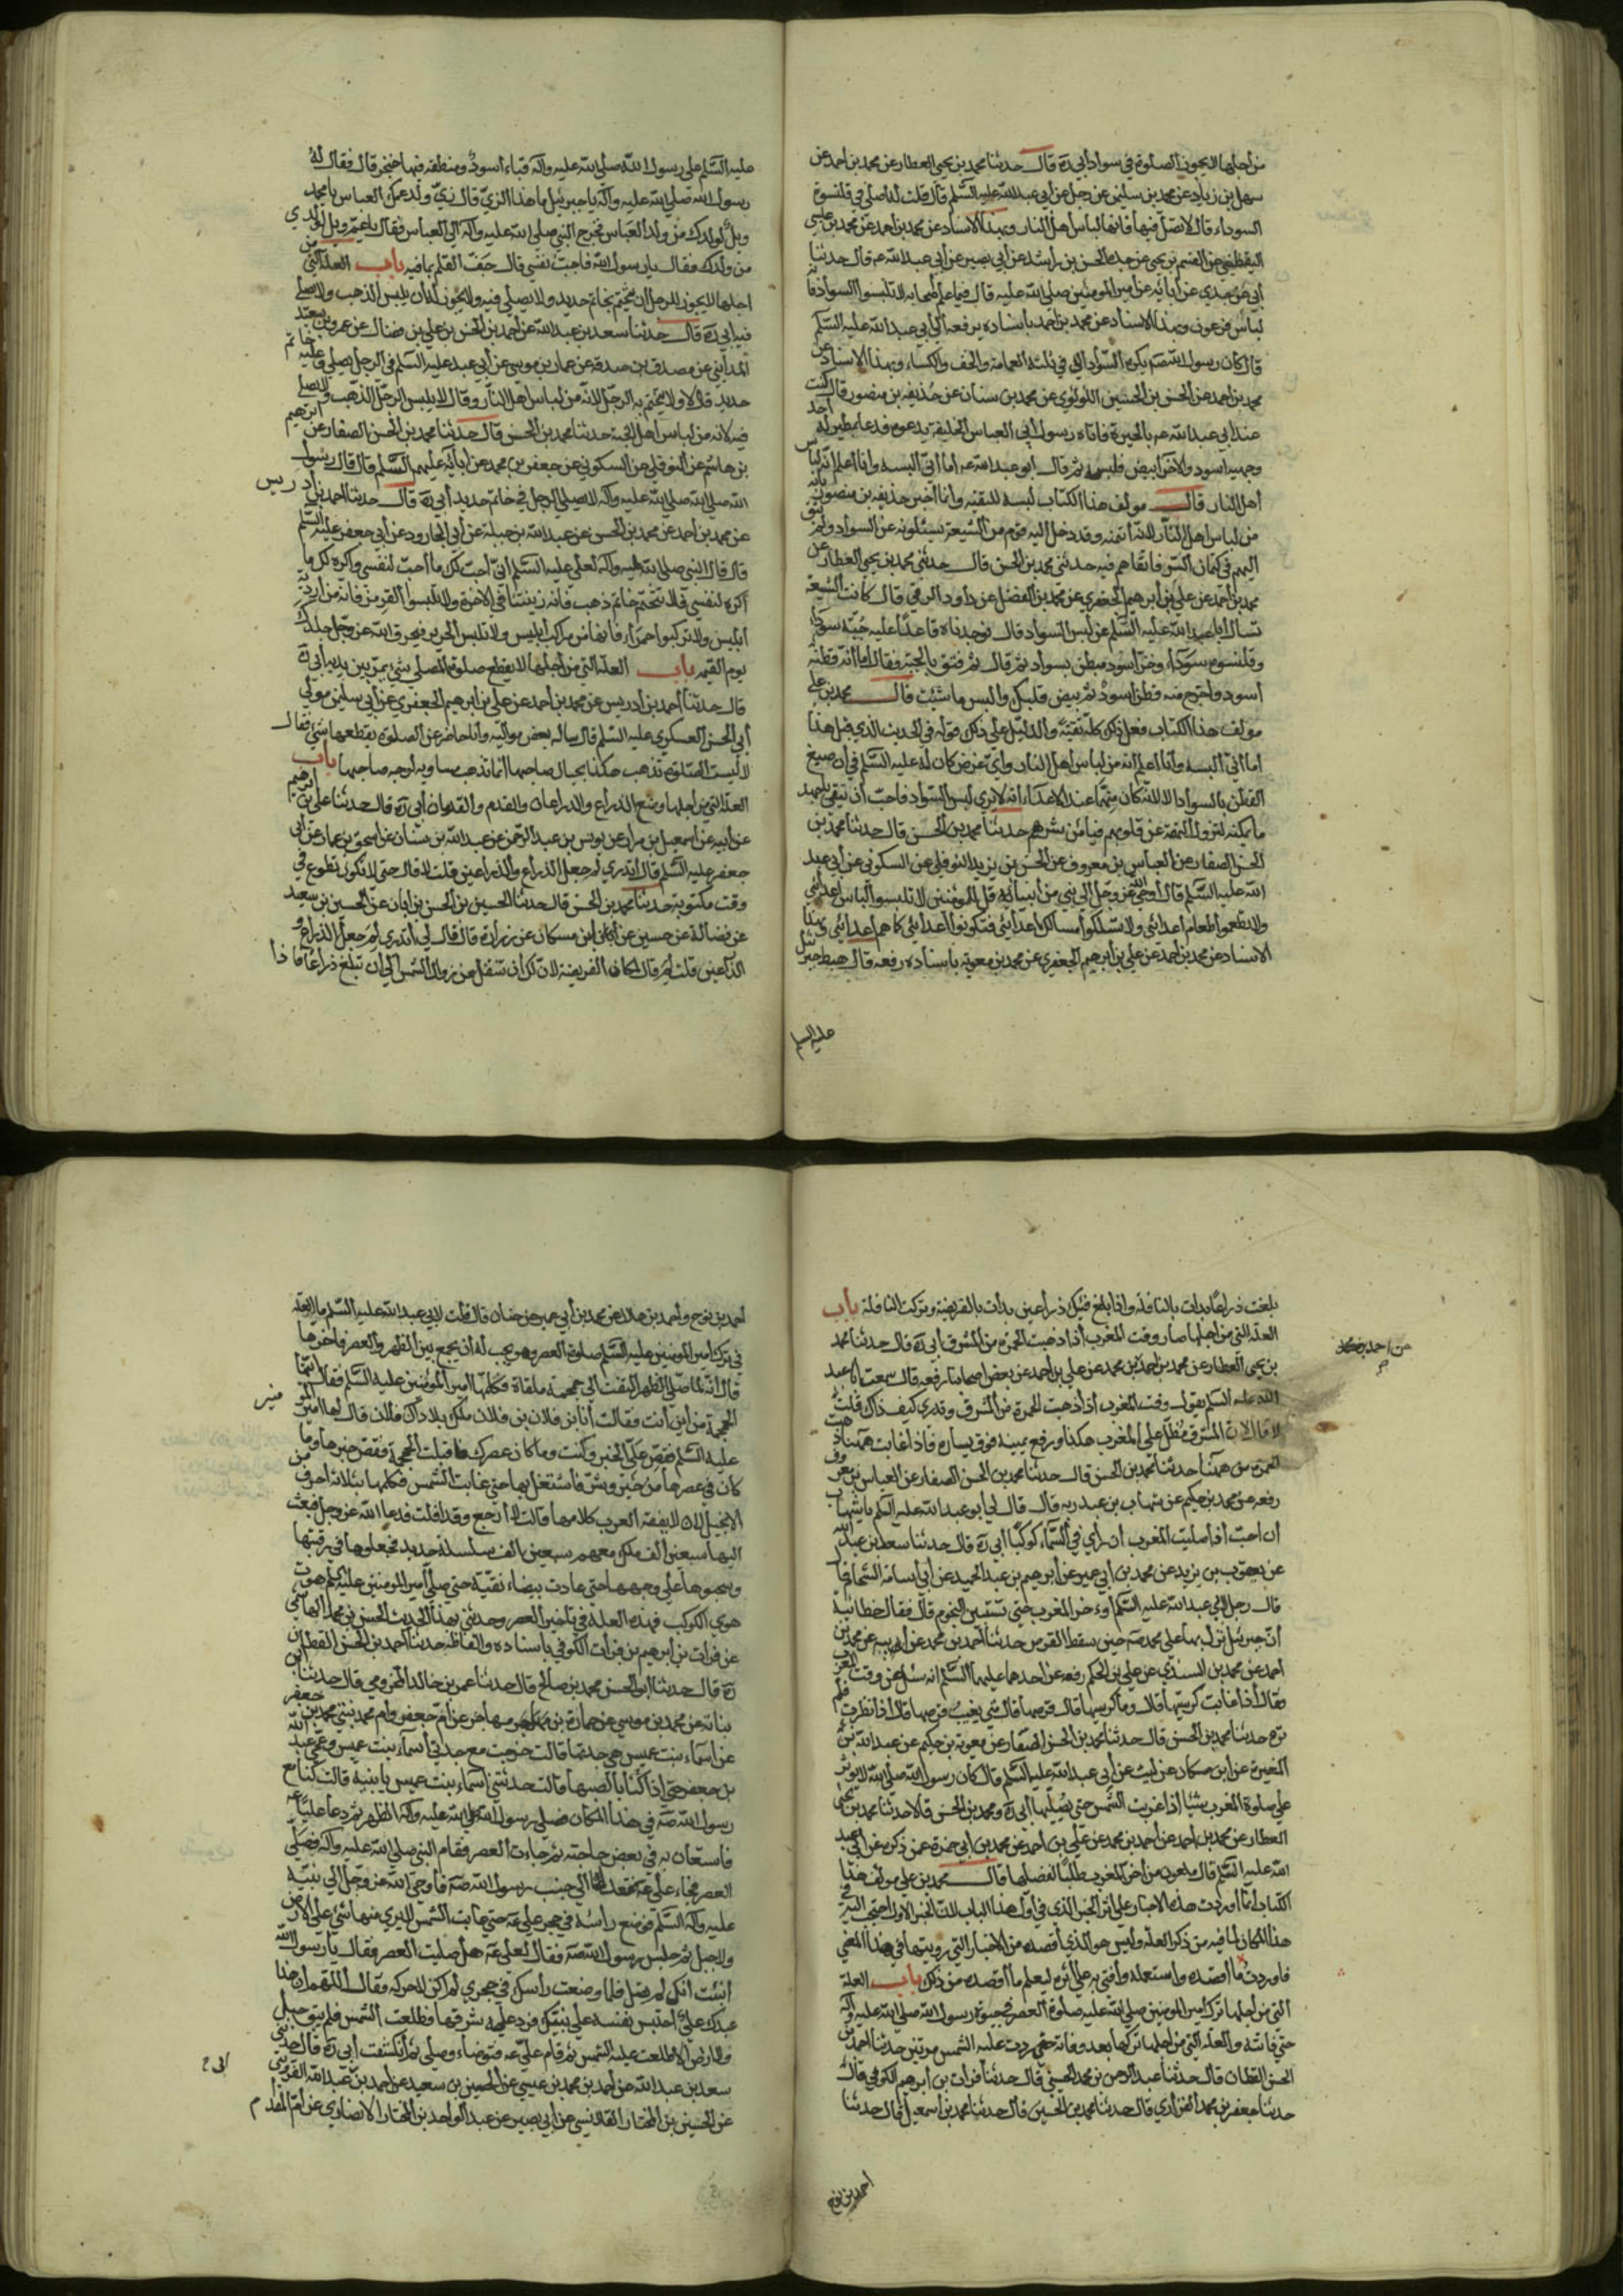 من أجلها لا يجوز الصلوة في سواد أبي ره قال حدثنا محمد بن يحيى العطار عن محمد بن احمد عن
سهل بن زياد عن محمد بن سليمن عن رجل عن أبي عبد الله عليه السلم قال قلت له اصلي في قلنسوة
السوداء قال لا تصل فيها فانها لباس أهل النار وبهذا الاسناد عن محمد بن احمد عن محمد بن عيسى
اليقطيني عن القسم بن يحيى عن جده الحسن بن راشد عن أبي بصير عن أبي عبد الله عه قال حدثنا
أبي عن جدي عن أبائه عن أمير المومنين صلى الله عليه قال فيما علم أصحابه لا تلبسوا السواد فانه
لباس فرعون وبهذا الاسناد عن محمد بن احمد باسناده يرفعه الى أبي عبد الله عليه السلم
قال كان رسول الله صه يكره السواد الا في ثلثة العمامة والخف والكساء وبهذا الاسناد عن
محمد بن احمد عن الحسن بن الحسين اللؤلؤي عن محمد بن سنان عن حذيفه بن منصور قال كنت
عند أبي عبد الله عه بالحيرة فاتاه رسول أبي العباس الخليفة يدعوه فدعا بمطر له احد
وجهيه اسود والاخر ابيض فلبسه ثم قال ابو عبد الله عه اما أني البسه وانا اعلم انه لباس
أهل النار قال مولف هذا الكتاب لبسه للتقية وانما أخبر حذيفه بن منصور بانه
من لباس اهل النار لانه ائتمنه وقد دخل اليه قوم من الشيعة يسئلونه عن السواد ولم يثق
اليهم في كتمان السر فاتقاهم فيه حدثني محمد بن الحسن قال حدثني محمد بن يحيى العطار عن
محمد بن أحمد عن علي بن أبرهيم الجعفري عن محمد بن الفضل عن داود الرقي قال كانت الشيعة
تسأل أبا عبد الله عليه السلم عن لبس السواد قال فوجدناه قاعدا عليه جبة سوداء
وقلنسوه سوداء وخف أسود مبطن بسواد ثم قال ثم فتق بالجبه فقال اما انه قطنه
أسود واخرج منه قطن اسود ثم بيض قلبك والبس ما شئت قال محمد بن علي
مولف هذا الكتاب فعل ذلك كله تقية والدليل على ذلك قوله في الحديث الذي قبل هذا
اما أني ألبسه وانا اعلم انه من لباس اهل النار واي غرض كان له عليه السلم في ان صبغ
القطن بالسواد الا لانه كان متهما عند الاعداء انه لا يرى لبس السواد فاحب أن يتقي باجهد
ما يمكنه لتزول التهمة عن قلوبهم فيامن شرهم حدثنا محمد بن الحسن قال حدثنا محمد بن
الحسن الصفار عن العباس بن معروف عن الحسين بن يزيد النوفلي عن السكوني عن أبي عبد
الله عليه السلم قال أوحى الله عز وجل الى نبي من أنبيائه قل للمؤمنين لا تلبسوا لباس أعدائي
ولا يطعموا طعام أعدائي ولا تسلكوا مسالك أعدائي فتكونوا أعدائي كما هم أعدائي وبهذا
الاسناد عن محمد بن احمد عن علي بن أبرهيم الجعفري عن محمد بن معويه باسناده رفعه قال هبط جبرئيل
عليه السلم
عليه السلم على رسول الله صلى الله عليه واله قباء أسود ومنطقه فيها خنجر قال فقال له
رسول الله صلى الله عليه واله يا جبرئيل ما هذا الزي قال زي ولد عمك العباس يا محمد
ويل لولدك من ولد العباس فخرج النبي صلى الله عليه واله الى العباس فقال يا عم ويل لولدي
من ولدك فقال يا رسول الله فاجب نفسي قال جف القلم بما فيه باب العلة التي من
اجلها لا يجوز للرجل ان يختم بخاتم حديد ولا يصلي فيه ولا يجوز له أن يلبس الذهب ولا يصلي
فيه ابي ره قال حدثنا سعد بن عبد الله عن أحمد بن الحسن بن علي بن فضال عن عمرو بن سعيد
المدايني عن مصدق بن صدقه عن عمار بن موسى عن أبي عبد الله عليه السلم في الرجل يصلي وعليه خاتم
حديد قال لا ولا يختم به الرجل لانه من لباس اهل النار وقال لا يلبس الرجل الذهب ولا يصلي
فيه لانه من لباس اهل الجنة حدثنا محمد بن الحسن قال حدثنا محمد بن الحسن الصفار عن ابرهيم
بن هاشم عن النوفلي عن السكوني عن جعفر بن محمد عن أبائه عليهم السلم قال قال رسول
الله صلى الله صلى الله عليه واله لا يصلي الرجل في خاتم حديد أبي ره قال حدثنا احمد بن أدريس
عن محمد بن احمد عن محمد بن الحسن عن عبد الله بن جبلة عن أبي الجارود عن أبي جعفر عليه السلم
قال قال النبي صلى الله عليه واله لعلي عليه السلم أني أحب لك ما أحب لنفسي واكره لك ما
أكره لنفسي فلا تتختم خاتم ذهب فانه زينتنا في الاخرة ولا تلبسوا القرمز فانه من اردية
أبليس ولا تركبوا حمراء فانها من مراكب ابليس ولا تلبس الحرير فيحرق الله عز وجل جلدك
يوم القيمه باب العلة التي من أجلها لا يقطع صلوة المصلي شيء يمر بين يديه أبي ره
قال حدثنا أحمد بن أدريس عن محمد بن احمد عن علي بن ابرهيم الجعفري عن أبي سليمن مولى
أبي الحسن العسكري عليه السلم قال ساله بعض مواليه وأنا حاضر عن الصلوة يقطعها شئ فقال
لا ليست الصلوة تذهب هكذا بحيال صاحبها انما تذهب مساويه لوجه صاحبها باب
العلة التي من أجلها وضع الذراع والذراعان والقدم والقدمان أبي ره قال حدثنا علي بن ابرهيم
عن أبيه عن اسمعيل بن مرار عن يونس بن عبد الرحمن عن عبد الله بن سنان عن اسحق بن عمار عن أبي
جعفر عليه السلم قال أتدري لم جعل الذراع والذراعين قلت لا قال حتى لا تكون تطوع في
وقت مكتوبة حدثنا محمد بن الحسن قال حدثنا الحسين بن الحسن بن أبان عن الحسين بن سعيد
عن فضالة عن حسين عن أبن مسكان عن زرارة قال قال لي أتدري لم جعل الذراع و
الذراعين قلت لم قال لمكان الفريضة لان لك ان تتنفل من زوال الشمس الى ان تبلغ ذراعا فاذا
بلغت ذراعا بدات بالنافله واذا بلغ فيئك ذراعين بدات بالفريضة وتركت النافلة باب
العلة التي من اجلها صار وقت المغرب أذا ذهبت الحمرة من المشرق أبي ره قال حدثنا محمد
بن يحيى العطار عن محمد بن احمد بن محمد عن علي بن احمد عن بعض اصحابنا رفعه قال سمعت ابا عبد
الله عليه السلم يقول وقت المغرب أذا ذهبت الحمرة من المشرق وتدري كيف ذاك قلت
لا قال لان المشرق مطل على المغرب هكذا ورفع يمينه فوق يساره فاذا غابت ههنا ذهبت
الحمرة من ههنا حدثنا محمد بن الحسن قال حدثنا محمد بن الحسن الصفار عن العباس بن معروف
رفعه عن محمد بن حكيم عن شهاب بن عبد ربه قال قال لي أبو عبد الله عليه السلم يا شهاب
أن احب أذا صليت المغرب ان ارى في السماء كوكبا أبي ره قال حدثنا سعد بن عبد الله
عن يعقوب بن يزيد عن محمد بن أبي عمير عن أبرهيم بن عبد الحميد عن أبي اسامة الشحام قال
قال رجل لابي عبد الله عليه السلم أوءخر المغرب حتى تستبين النجوم قال فقال خطابية
أن جبرئيل نزل بها على محمد صه حين سقط القرص حدثنا أحمد بن محمد عن أبيه عن محمد بن
احمد عن محمد بن السندي عن علي بن الحكم رفعه عن احدهما عليهما السلم انه سئل عن وقت المغرب
فقال أذا غابت كرسيها قال وما كرسيها قال قرصها قال متى يغيب قرصها قال اذا نظرت فلم
تره حدثنا محمد بن الحسن قال حدثنا محمد بن الحسن الصفار عن معويه بن حكيم عن عبد الله بن
المغيرة عن ابن مسكان عن ليث عن أبي عبد الله عليه السلم قال كان رسول الله صلى الله لا يوثر
على صلوة المغرب شيئا اذا غربت الشمس حتى يصليها أبي ره ومحمد بن الحسن قالا حدثنا محمد بن يحيى
العطار عن محمد بن احمد عن أحمد بن محمد عن علي بن احمد عن محمد بن أبي حمزة عمن ذكره عن ابي عبد
الله عليه السلم قال ملعون من أخر المغرب طلبا لفضلها قال محمد بن علي مولف هذا
الكتاب انما أوردت هذه الاخبار على أثر الخبر الذي في اول هذا الباب لان الخبر الاول احتجت اليه في
هذا المكان لما فيه من ذكر العلة وليس هو الذي أقصده من الاخبار التي رويتها في هذا المعنى
فاوردت ما أقصده واستعمله وافتي به على أثره ليعلم ما أقصده من ذلك باب العلة
التي من أجلها ترك امير المومنين صلى الله عليه صلوة العصر في حيوة رسول الله صلى الله عليه واله
حتى فاتته والعلة التي من اجلها تركها بعد وفاته حتى ردت عليه الشمس مرتين حدثنا احمد بن
الحسن القطان قال حدثنا عبد الرحمن بن محمد الحسيني قال حدثنا فرات بن أبرهيم الكوفي قال
حدثنا جعفر بن محمد الفزاري قال حدثنا محمد بن الحسين قال حدثنا محمد بن اسمعيل قال حدثنا
أحمد بن نوح
أحمد بن نوح واحمد بن هلال عن محمد بن أبي عمير عن حنان قال قلت لابي عبد الله عليه السلم ما العلة
في ترك أمير المومنين عليه السلم صلوة العصر وهو يجب له ان يجمع بين الظهر والعصر فاخرها
قال انه لما صلى الظهر التفت الى جمجمة ملقاة فكلمها امير المؤمنين عليه السلم فقال أيتها
الجمجمة من أين أنت فقالت أنا ابن فلان بن فلان ملك بلاد آل فلان قال لها امير المومنين
عليه السلم فقصي علي الخبر وكنت وما كان عصرك فاقبلت الجمجمة تقص خبرها وما
كان في عصرها من خير وشر فاشتغل بها حتى غابت الشمس فكلمها بثلاثة احرف من
الانجيل لان لا يفقه العرب كلامها قالت لا أرجع وقد افلت فدعا الله عز وجل فبعث
اليها سبعين ألف ملك معهم سبعين الف سلسلة حديد فجعلوها في رقبتها
وسحبوها على وجهها حتى عادت بيضاء نقية حتى صلى أمير المومنين عليه السلم ثم هوت
هوي الكوكب فهذه العلة في تاخير العصر وحدثني بهذا الحديث الحسن بن محمد الهاشمي
عن فرات بن أبرهيم بن فرات الكوفي باسناده والفاظه حدثنا أحمد بن الحسن القطان
ره قال حدثنا ابو الحسن محمد بن صالح قال حدثنا عمر بن خالد المخزومي قال حدثنا ابن
نباته عن محمد بن موسى عن عمارة بن مهاجر عن أم جعفر وام محمد بنتي محمد بن جعفر
عن أسماء بنت عميس وهي جدتها قالت خرجت مع جدتي أسماء بنت عميس وعمي عبد الله
بن جعفر حتى اذا كنا بالصهبا قالت حدثتني أسماء بنت عميس يا بنية قالت كنا مع
رسول الله صه في هذا المكان فصلى رسول الله صلى الله عليه واله الظهر ثم دعا عليا عه
فاستعان به في بعض حاجته ثم جاءت العصر فقام النبي صلى الله عليه واله فصلى
العصر فجاء علي عه فقعد الى جنب رسول الله صه فاوحى الله عز وجل الى نبيه
عليه واله السلم فوضع رأسه في حجر علي عه حتى غابت الشمس لا يرى منها شئ على الارض
ولا جبل ثم جلس رسول الله صه فقال لعلي عه هل صليت العصر فقال يا رسول الله
أنبئت انك لم تصل فلما وضعت راسك في حجري لم اكن لاحركه فقال اللهم ان هذا
عبدك علي احتبس بنفسه على نبيك فرد عليه شرقها فطلعت الشمس فلم يبق جبل
ولا ارض الا طلعت عليه الشمس ثم قام علي عه فتوضاء وصلى ثم انكشفت أبي ره قال حدثني
سعد بن عبد الله عن أحمد بن محمد بن عيسى عن الحسين بن سعيد عن احمد بن عبد الله القزويني
عن الحسين بن المختار القلانسي عن أبي بصير عن عبد الواحد بن المختار الانصاري عن ام المقدام